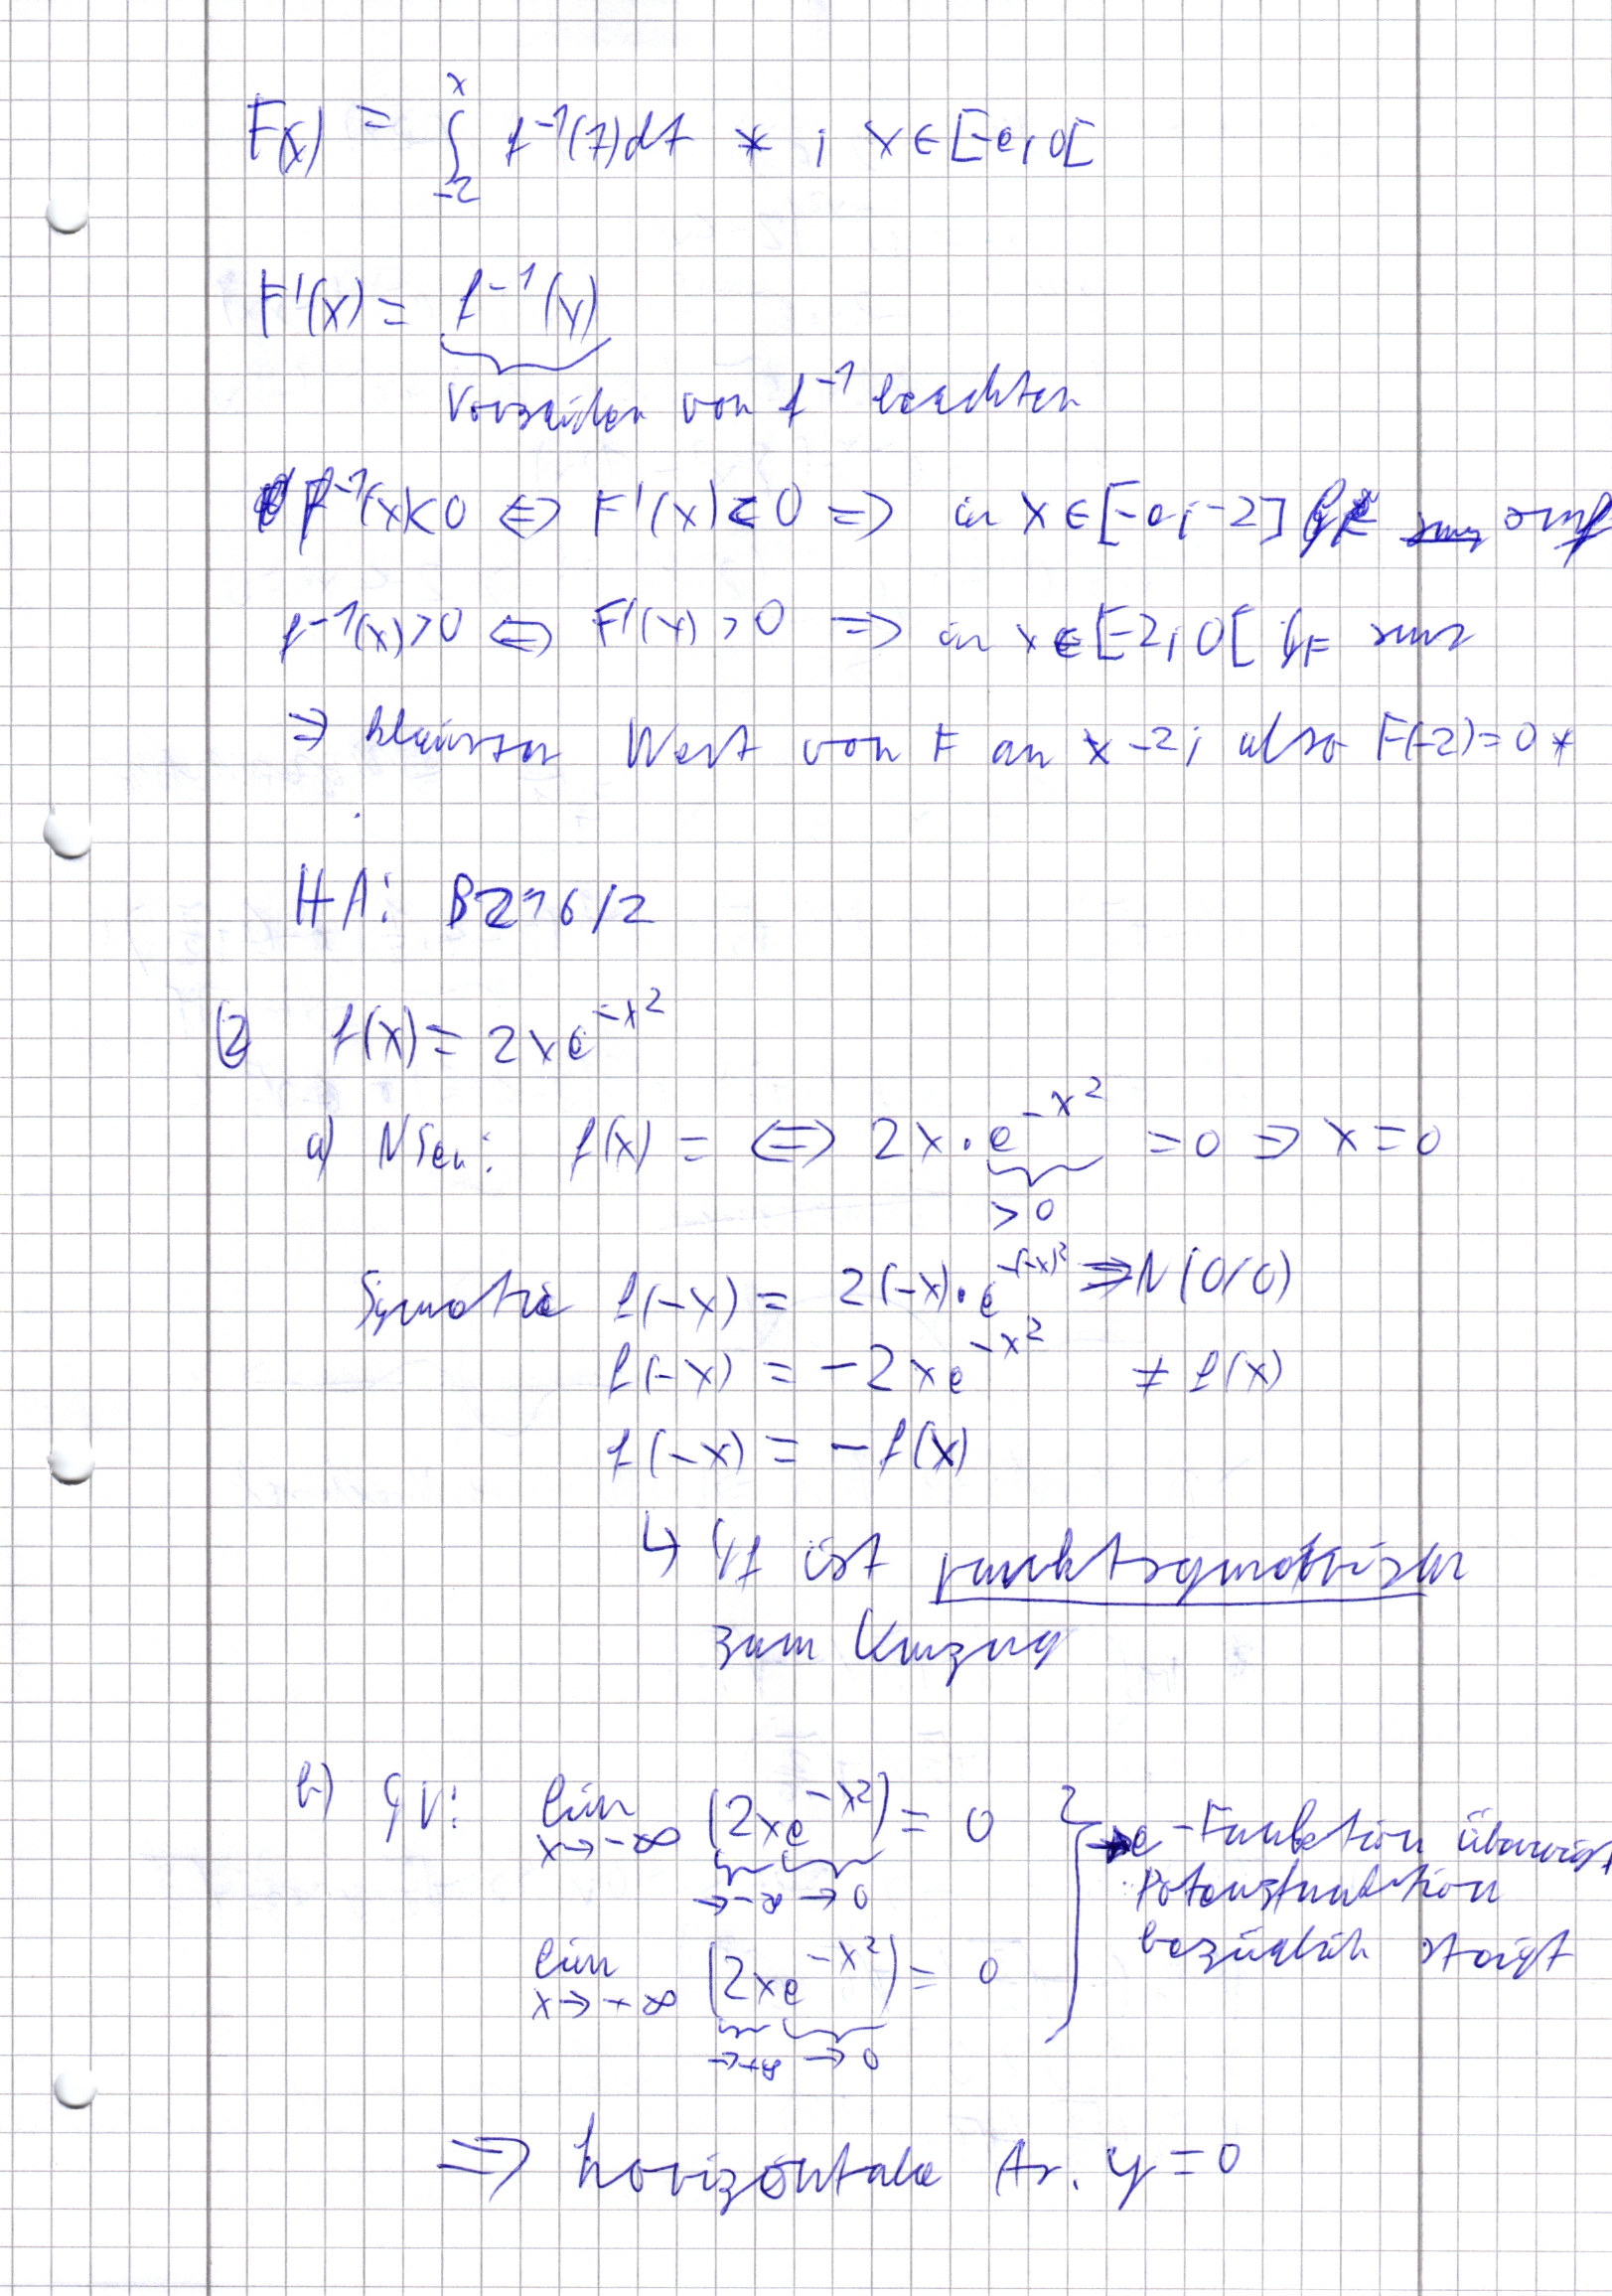 F(x) = ∫₋₂ˣ f⁻¹(t)dt * ; x ∈ [-e; 0[
F'(x) = f⁻¹(x)
Vorzeichen von f⁻¹ beachten
f⁻¹(x) < 0 ⇔ F'(x) < 0 ⇒ in x ∈ [-e; -2] G_F smf
f⁻¹(x) > 0 ⇔ F'(x) > 0 ⇒ in x ∈ [-2; 0[ G_F smz
⇒ kleinster Wert von F an x -2; also F(-2) = 0 *
HA: B216/2
② f(x) = 2xe^(-x²)
a) NSen: f(x) = ⇔ 2x · e^(-x²) = 0 ⇒ x = 0
> 0
Symetrie f(-x) = 2(-x) · e^(-(-x)²) ⇒ N(0/0)
f(-x) = -2xe^(-x²) ≠ f(x)
f(-x) = -f(x)
↳ Gf ist punktsymetrisch
zum Urszug
b) GV: lim x→-∞ (2xe^(-x²)) = 0
→-∞ →0
lim x→+∞ (2xe^(-x²)) = 0
→+∞ →0
→ e-Funktion überwiegt
Potenzfunktion
bezüglich steigt
⇒ horizontale As. y = 0